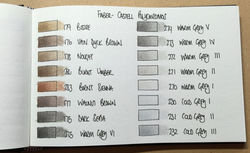 FABER-CASTELL POLYCHROMOS
179 BISTRE
176 VAN DYCK BROWN
178 NOUGAT
280 BURNT UMBER
283 BURNT SIENNA
177 WALNUT BROWN
175 DARK SEPIA
275 WARM GREY VI
274 WARM GREY V
273 WARM GREY IV
272 WARM GREY III
271 WARM GREY II
270 WARM GREY I
230 COLD GREY I
231 COLD GREY II
232 COLD GREY III